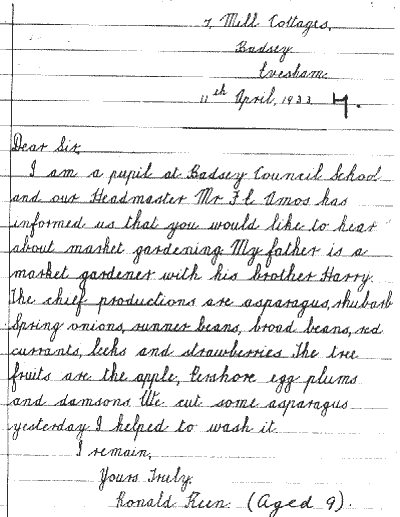 7, Mill Cottages,
Badsey
Evesham.
11th April, 1933 H.
Dear Sir,
I am a pupil at Badsey Council School
and our Headmaster Mr F. L Amos has
informed us that you would like to hear
about market gardening. My father is a
market gardener with his brother Harry.
The chief productions are asparagus, rhubarb
Spring onions, runner beans, broad beans, red
currants, leeks and strawberries. The tree
fruits are the apple, Pershore egg plums
and damsons. We cut some asparagus
yesterday I helped to wash it.
I remain,
Yours Truly.
Ronald Keen. (Aged 9).